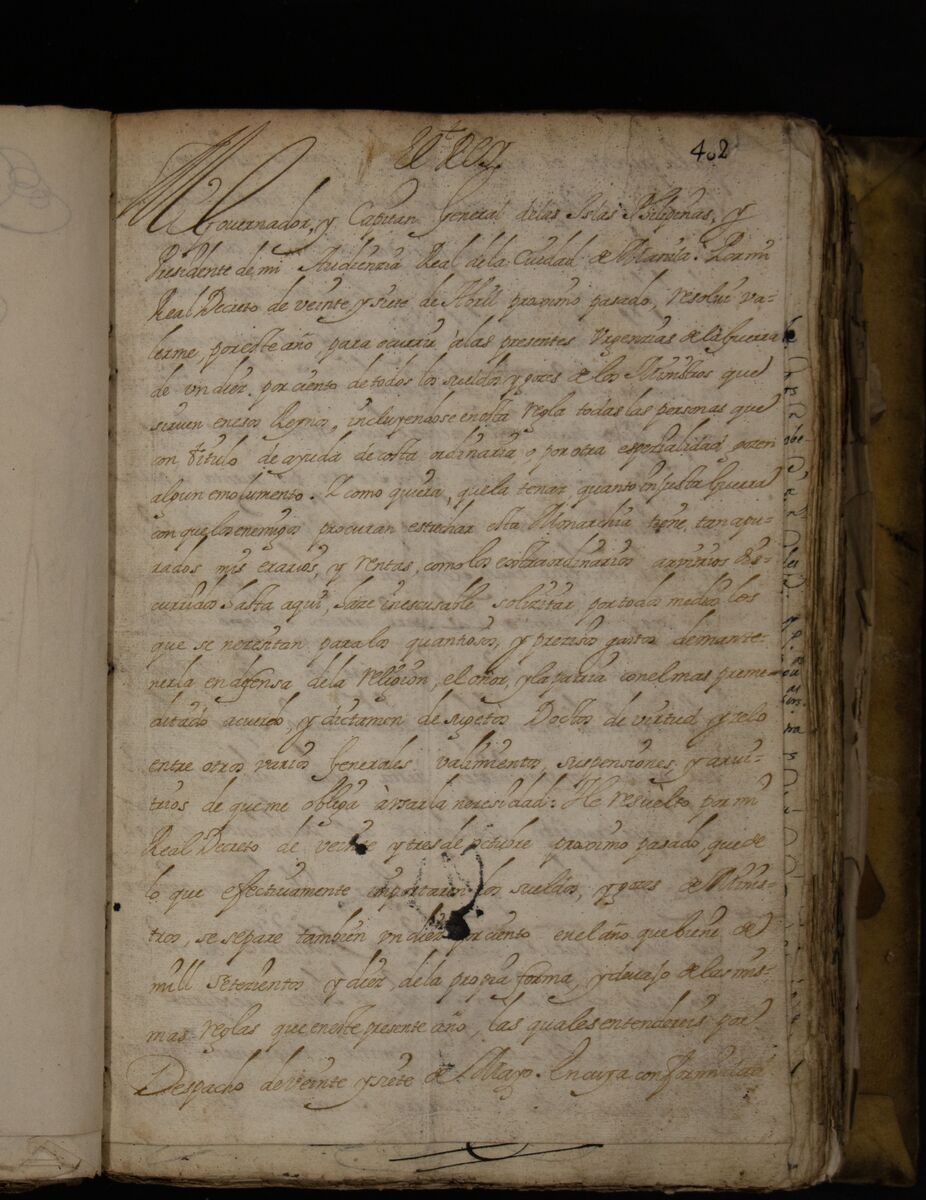 402
El Rey.
Mi Governador, y Capitan General delas Islas Philipinas, y
Presidente de mi Audiencia Real dela Ciudad de Manila. Por mi
Real Decreto de veinte y siete de Abril proximo pasado, resolvi va-
lerme, por este año para ocurrir à las presentes Urgencias de la Guerra
de un diez por ciento de todos los sueldos y gozes de los Ministros que
sirven en esos Reynos, incluyendose en esta regla todas las personas que
con titulo de ayuda de costa ordinaria o por otra espezialidad gozen
algun emolumento. Y como quiera, que la tenaz, quanto injusta Guerra
con que los enemigos procuran estrechar esta Monarchia tiene, tan apu-
rados mis erarios, y rentas, como los extraordinarios arvitrios dis-
curridos hasta aqui, haze inescusable solizitar por todos medios los
que se nezesitan para los quantiosos, y prezisos gastos de mante-
nerla en defensa dela religion, el onor, y la patria con el mas preme-
ditado acuerdo, y dictamen de sugetos Doctos de virtud y zelo
entre otros varios Generales valimientos, suspensiones y arvi-
trios de que me obliga à usar la nezesidad: He resuelto por mi
Real Decreto de veinte y tres de octubre proximo pasado, que de
lo que efectivamente importaren los sueldos, y gozes de Minis-
tros, se separe tambien un diez por ciento en el año que biene de
mill setezientos y diez, dela propia forma, y devajo de las mis-
mas reglas que en este presente año, las quales entendereis por
Despacho de veinte y siete de Mayo. En cuya conformidad